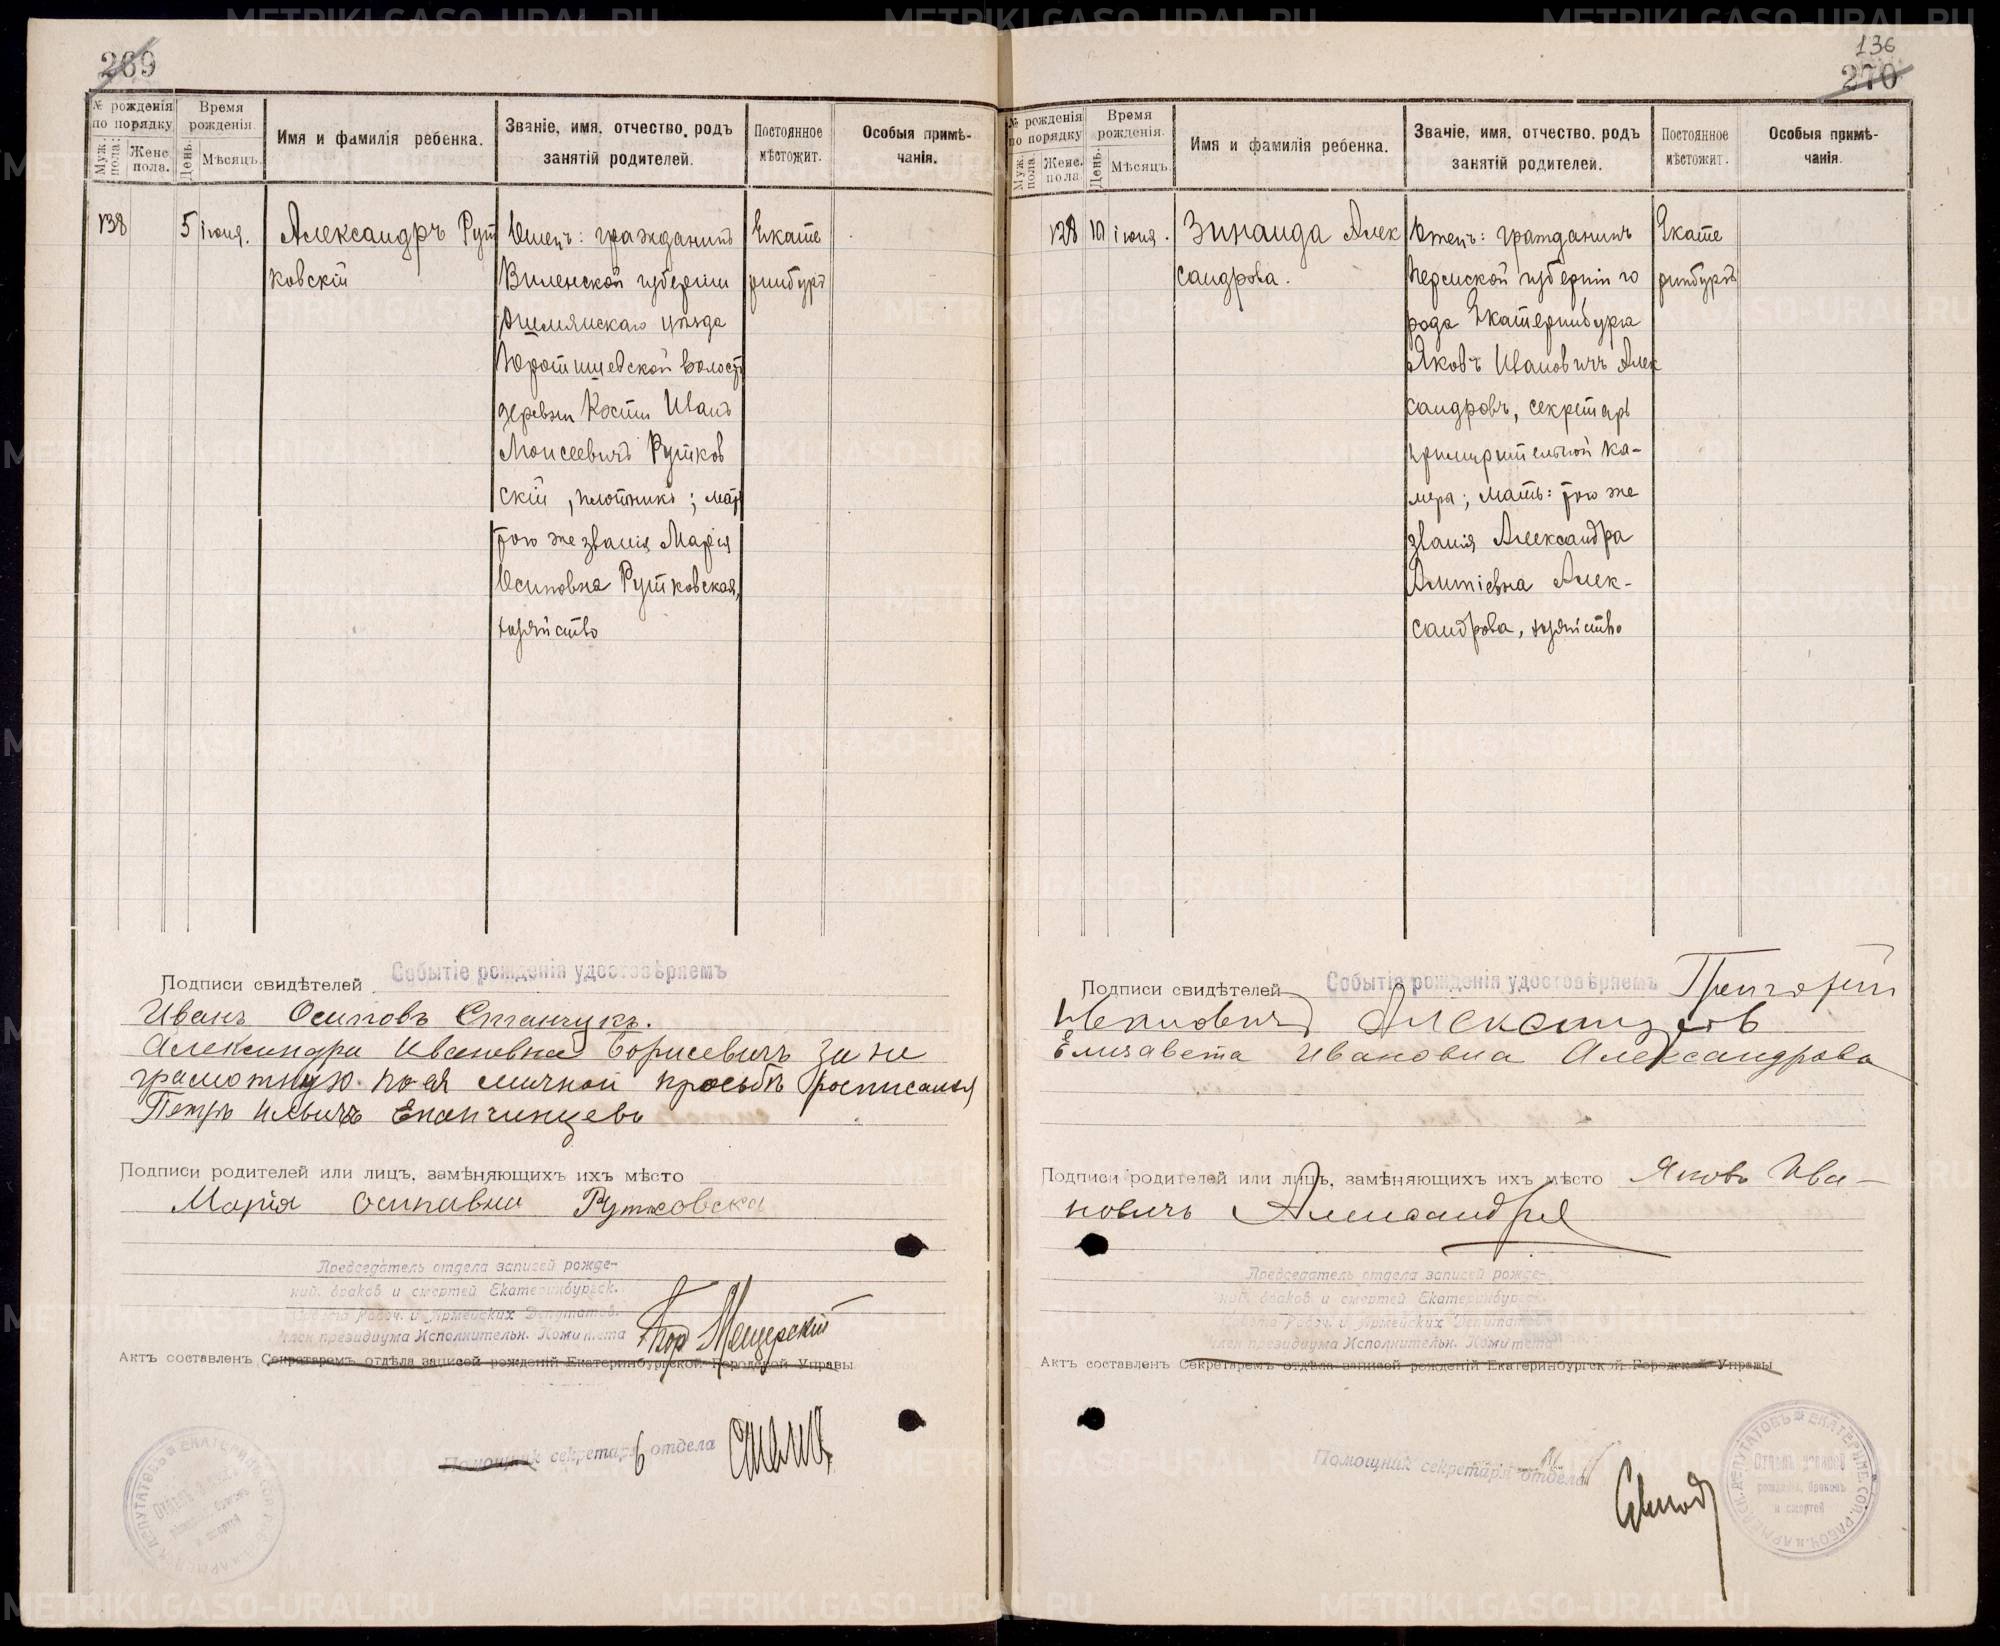 269
№ рожденія по порядку
Муж. пола.
Женс. пола.
Время рожденія.
День.
Мѣсяцъ.
Имя и фамилія ребенка.
Званіе, имя, отчество, родъ
занятій родителей.
Постоянное
мѣстожит.
Особыя примѣ-
чанія.
138
5 іюня.
Александръ Рут
ковскій
Отецъ: гражданинъ
Виленской губерніи
Ошмянскаго уѣзда
Юратишевской волост
деревни Кости Иванъ
Моисеевичъ Рутков
скій, плотникъ; мат
того же званія Марія
Осиповна Рутковская,
хозяйство
Екате
ринбургъ
Подписи свидѣтелей
Событіе рожденія удостовѣряемъ
Иванъ Осиповъ Станчукъ.
Александра Ивановна Борисевичъ за не
грамотную по ея личной просьбѣ росписался
Петръ Ильичъ Епанчинцевъ
Подписи родителей или лицъ, замѣняющихъ ихъ мѣсто
Марія Осипавна Рутковска
Председатель отдела записей рожде-
ний, браков и смертей Екатеринбургск.
Совета Рабоч. и Армейских Депутатов.
Член президиума Исполнительн. Комитета
Мещерскій
Актъ составленъ Секретаремъ отдѣла записей рожденій Екатеринбургской Городской Управы
Помощник секретаря отдела
136
270
№ рожденія по порядку
Муж. пола.
Женс. пола.
Время рожденія.
День.
Мѣсяцъ.
Имя и фамилія ребенка.
Званіе, имя, отчество, родъ
занятій родителей.
Постоянное
мѣстожит.
Особыя примѣ-
чанія.
128
10 іюня.
Зинаида Алек
сандрова.
Отецъ: гражданинъ
Пермской губерніи го
рода Екатеринбурга
Яковъ Ивановичъ Алек
сандровъ, секретарь
примирительной ка-
меры; мать: того же
званія Александра
Алек-
сандрова, хозяйство
Екате
ринбургъ
Подписи свидѣтелей
Событіе рожденія удостовѣряемъ
Григорій
Александров
Елизавета Ивановна Александрова
Подписи родителей или лицъ, замѣняющихъ ихъ мѣсто
Яковъ Ива-
новичъ
Председатель отдела записей рожде-
ний, браков и смертей Екатеринбургск.
Совета Рабоч. и Армейских Депутатов.
Член президиума Исполнительн. Комитета
Актъ составленъ Секретаремъ отдѣла записей рожденій Екатеринбургской Городской Управы
Помощник секретаря отдела
Отдѣлъ записей
рожденія, браковъ
и смертей
METRIKI.GASO-URAL.RU